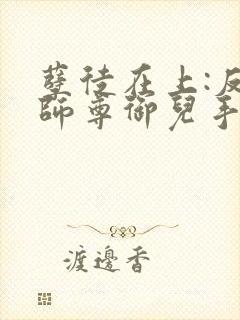 孽徒在上:反
師尊御兒手
渡邊香